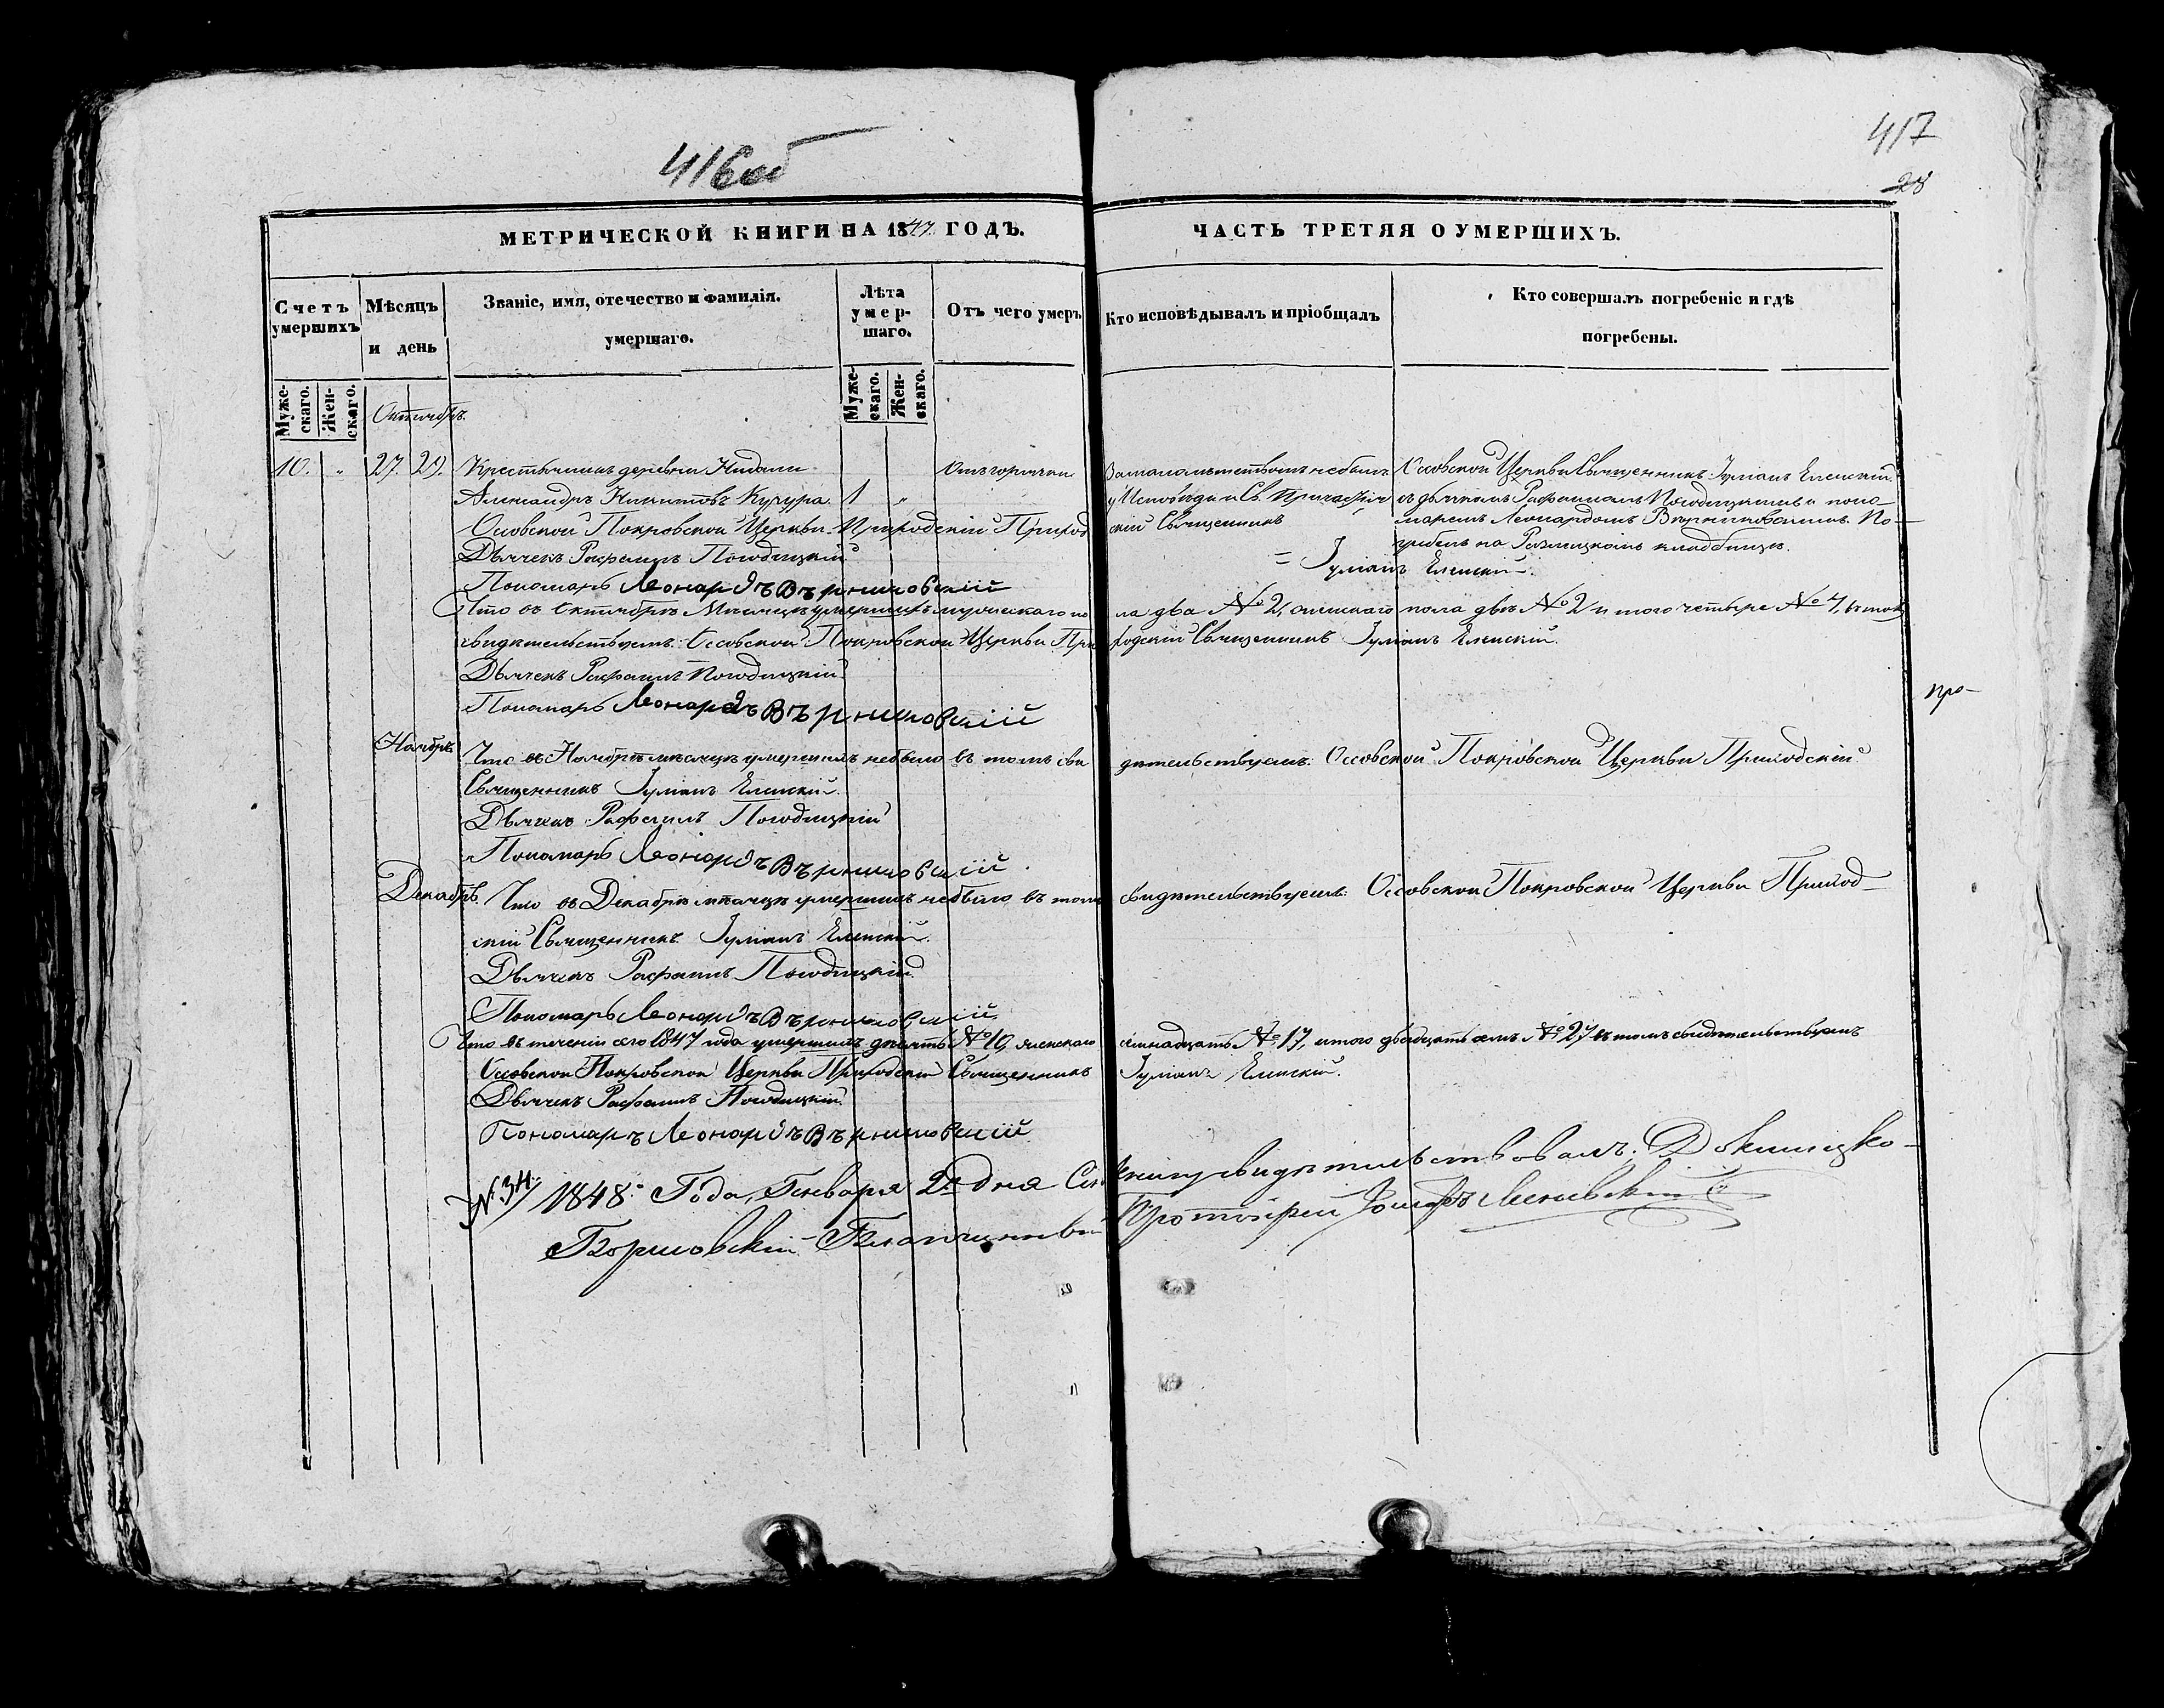 416об
417
28
МЕТРИЧЕСКОЙ КНИГИ НА 1847 ГОДЪ.
ЧАСТЬ ТРЕТЯЯ О УМЕРШИХЪ.
Счетъ умершихъ
Мѣсяцъ и день
Званіе, имя, отечество и фамилія.
умершаго.
Лѣта умер-
шаго.
Отъ чего умеръ
Кто исповѣдывалъ и пріобщалъ
Кто совершалъ погребеніе и гдѣ
погребены.
Муже-
скаго.
Жен-
скаго.
Муже-
скаго.
Жен-
скаго.
Октябрь.
10. " 27. 29. Крестьянинъ деревни
Александръ Никитовъ Кучура. 1 "
Отъ горячки
За малолѣтствомъ небылъ
у Исповѣди и Св. Причастія
Оссовской Церкви Священникъ Іуліанъ Еленскій
съ дьячкомъ Рафаиломъ Погодицкимъ и поно-
маремъ Леонардомъ По-
гребенъ на кладбищѣ.
Оссовской Покровской Церкви Приходскій Приход
скій Священникъ
= Іуліанъ Еленскій.
Дьячекъ Рафаилъ Погодицкій
Пономарь Леонардъ Вѣрниковскій
Что въ Октябрѣ Мѣсяцѣ умершихъ мужескаго по
ла два №2, женскаго пола двѣ №2 и того четыре №4, въ томъ
свидѣтельствуемъ: Оссовской Покровской Церкви При
ходскій Священникъ Іуліанъ Еленскій.
Дьячекъ Рафаилъ Погодицкій
Пономарь Леонардъ Вѣрниковскій
про-
Ноябрь
Что въ Ноябрѣ мѣсяцѣ умершихъ небыло въ томъ сви
дѣтельствуемъ: Оссовской Покровской Церкви Приходскій
Священникъ Іуліанъ Еленскій.
Дьячекъ Рафаилъ Погодицкій
Пономарь Леонардъ Вѣрниковскій
Декабрь.
Что въ Декабрѣ мѣсяцѣ умершихъ небыло въ томъ
свидѣтельствуемъ: Оссовской Покровской Церкви Приход-
скій Священникъ Іуліанъ Еленскій.
Дьячекъ Рафаилъ Погодицкій.
Пономарь Леонардъ Вѣрниковскій
Что въ теченіи сего 1847 года умершихъ №10, женскаго
семнадцать №17, итого двадцать семь №27 въ томъ свидѣтельствуемъ
Оссовской Покровской Церкви Приходскій Священникъ
Іуліанъ Еленскій.
Дьячекъ Рафаилъ Погодицкій.
Пономаръ Леонардъ Вѣрниковскій
№ 34. 1848го Года, Генваря 2го дня Сію
книгу свидѣтельствовалъ: Докшицко-
Борисовскій Благочинный
Протоіерей Іосифъ